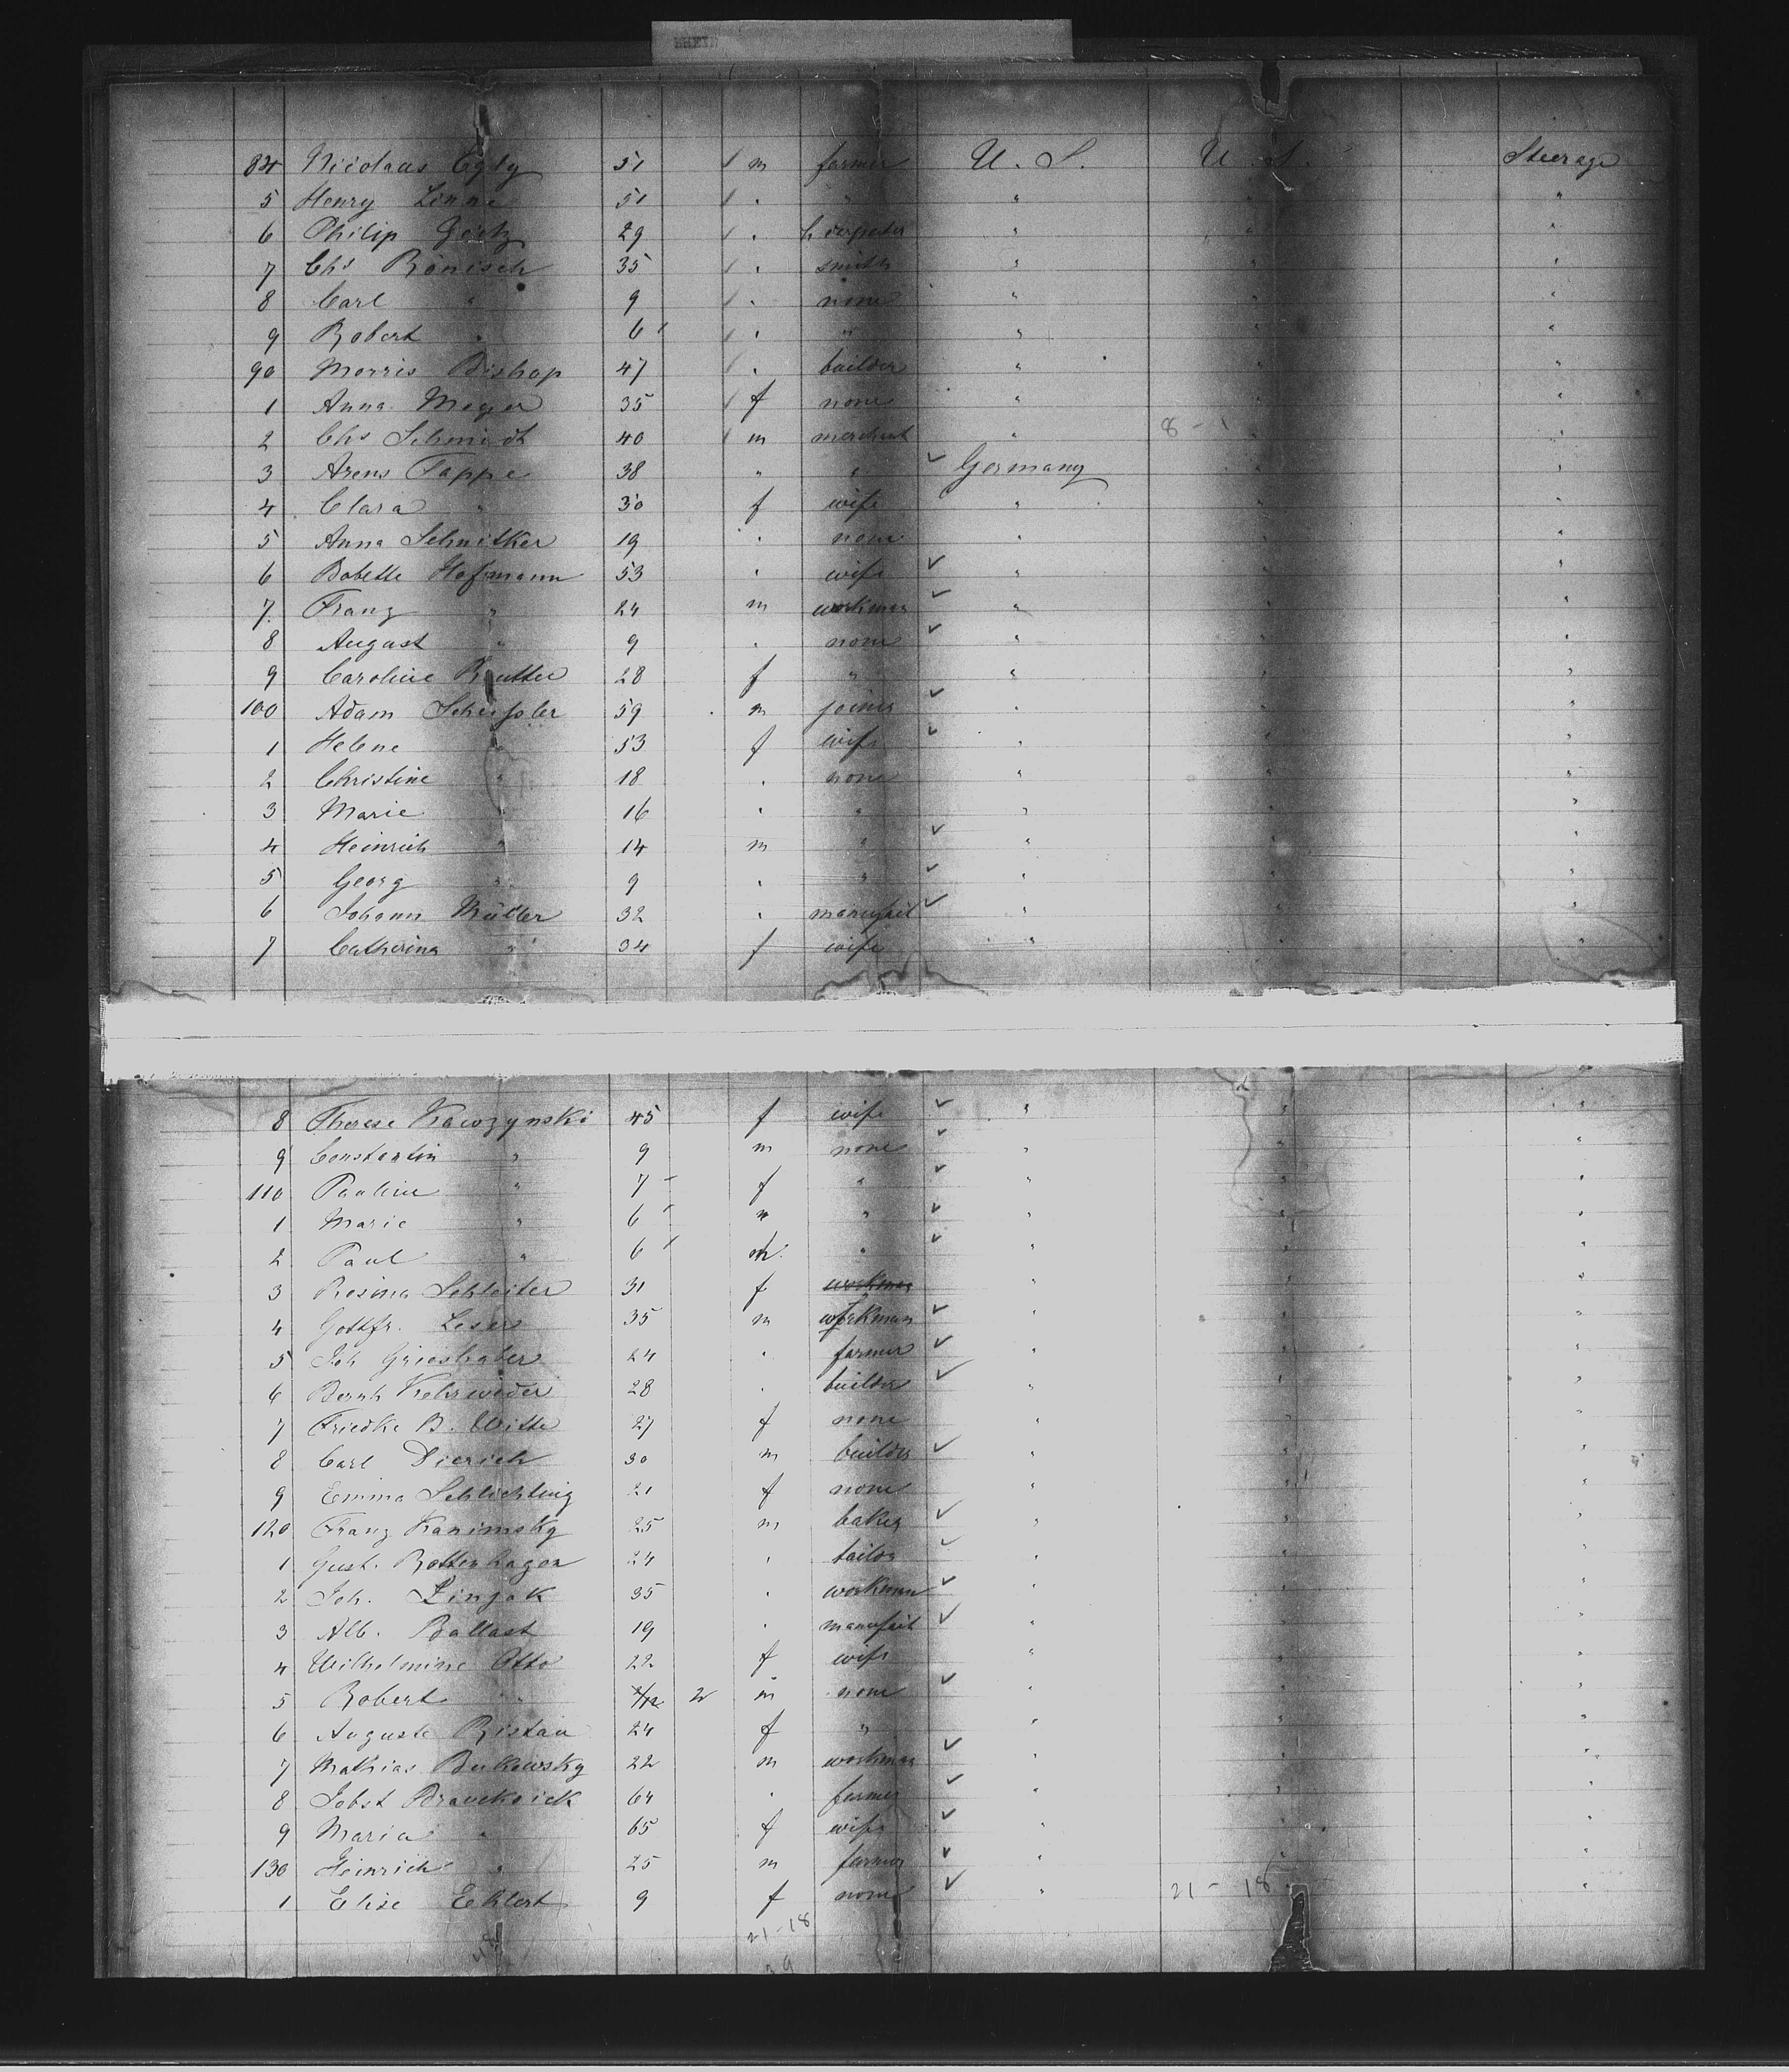 84 Nicolaus Egly 51 m farmer U. S. U. S. Steerage
5 Henry Linne 51 " " " " "
6 Philip Goetz 29 " " " "
7 Chs Rönisch 35 " smith " " "
8 Carl " 9 " none " " "
9 Robert " 6 " " " " "
90 Morris Bishop 47 " builder " " "
1 Anna Meyer 35 f none " " "
2 Chs Schmidt 40 m merchant " 8 - 1 " "
3 Arens Tappe 38 " " ✓ Germany " "
4 Clara " 30 f wife " " "
5 Anna Schnitker 19 " none " " "
6 Babette Hofmann 53 " wife ✓ " " "
7. Franz " 24 m workman ✓ " " "
8 August " 9 " none ✓ " " "
9 Caroline Reutter 28 f " " " "
100 Adam Scheissler 59 m joiner ✓ " " "
1 Helene " 53 f wife ✓ " " "
2 Christine " 18 " none " " "
3 Marie " 16 " " " " "
4 Heinrich " 14 m " ✓ " " "
5 Georg " 9 " " ✓ " " "
6 Johann Müller 32 " manufact ✓ " " "
7 Catharina " 34 f wife " " "
8 Therese Kawzynski 45 f wife ✓ " " "
9 Constantin " 9 m none ✓ " " "
110 Pauline " 7 f " ✓ " " "
1 Marie " 6 " " ✓ " " "
2 Paul " 6 m. " ✓ " " "
3 Rosina Schleiter 31 f workman " " "
4 Gottfr. Leser 35 m workman ✓ " " "
5 Joh Grieshaber 24 " farmer ✓ " " "
6 Bernh Kehrwieder 28 " builder ✓ " " "
7 Friedke B. Witte 27 f none " " "
8 Carl Dierich 30 m builder ✓ " " "
9 Emma Schlichting 21 f none " " "
120 Franz Kanimsky 25 m baker ✓ " " "
1 Gust. Rottenhagen 24 " tailor ✓ " " "
2 Joh. Zinjak 35 " workman ✓ " " "
3 Alb. Ballast 19 " manufact ✓ " " "
4 Wilhelmine Otto 22 f wife " " "
5 Robert " /12 2 m none ✓ " " "
6 Auguste Ristau 24 f " " " "
7 Mathias Bukowsky 22 m workman ✓ " " "
8 Jobst Brauckoick 64 " farmer ✓ " " "
9 Maria " 65 f wife ✓ " " "
130 Heinrich " 25 m farmer ✓ " " "
1 Elise Eklert 9 f none ✓ " 21 - 18 " "
21-18